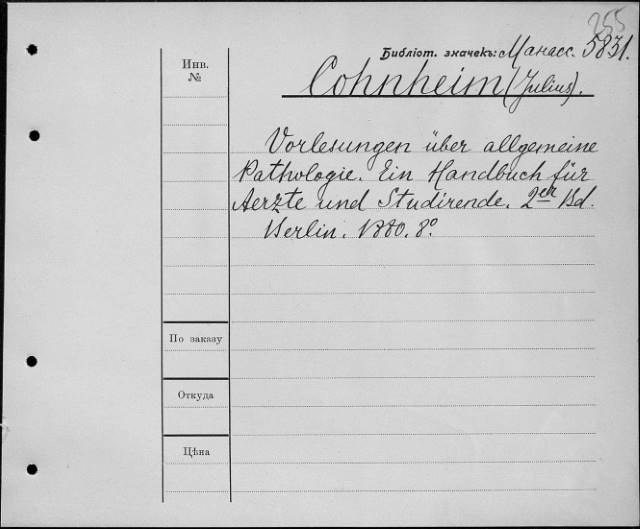 255
Библіот. значекъ: Манасс. 5831.
Инв.
№
Cohnheim (Julius).
Vorlesungen über allgemeine
Pathologie. Ein Handbuch für
Aerzte und Studirende. 2er Bd.
Berlin. 1880. 8°.
По заказу
Откуда
Цѣна